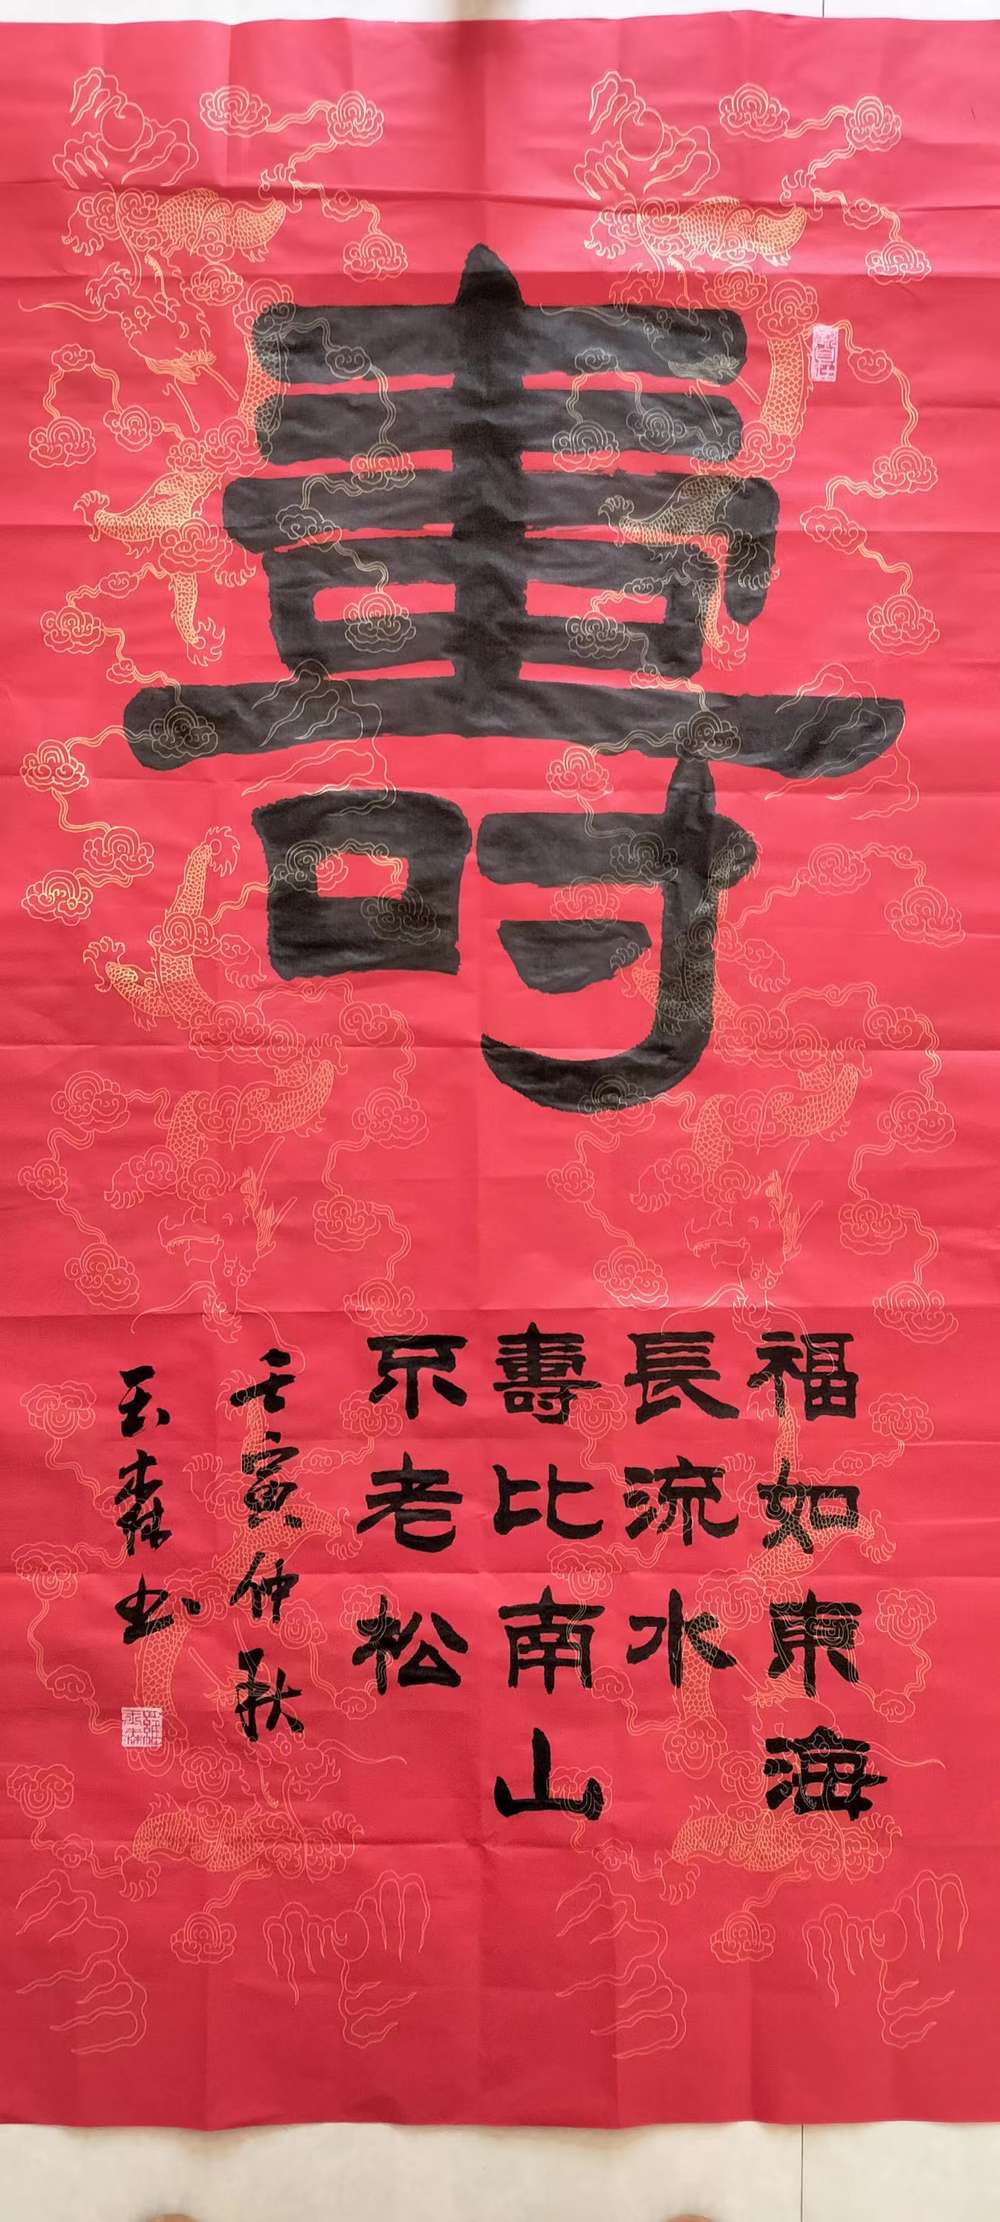 壽
福如東海
長流水
壽比南山
不老松
壬寅仲秋
玉森书